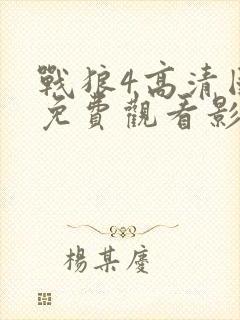 戰狼4高清
免費觀看影
楊某慶